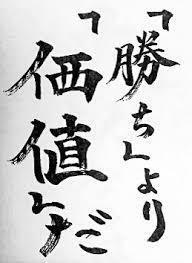 「勝ち」より
「価値」だ